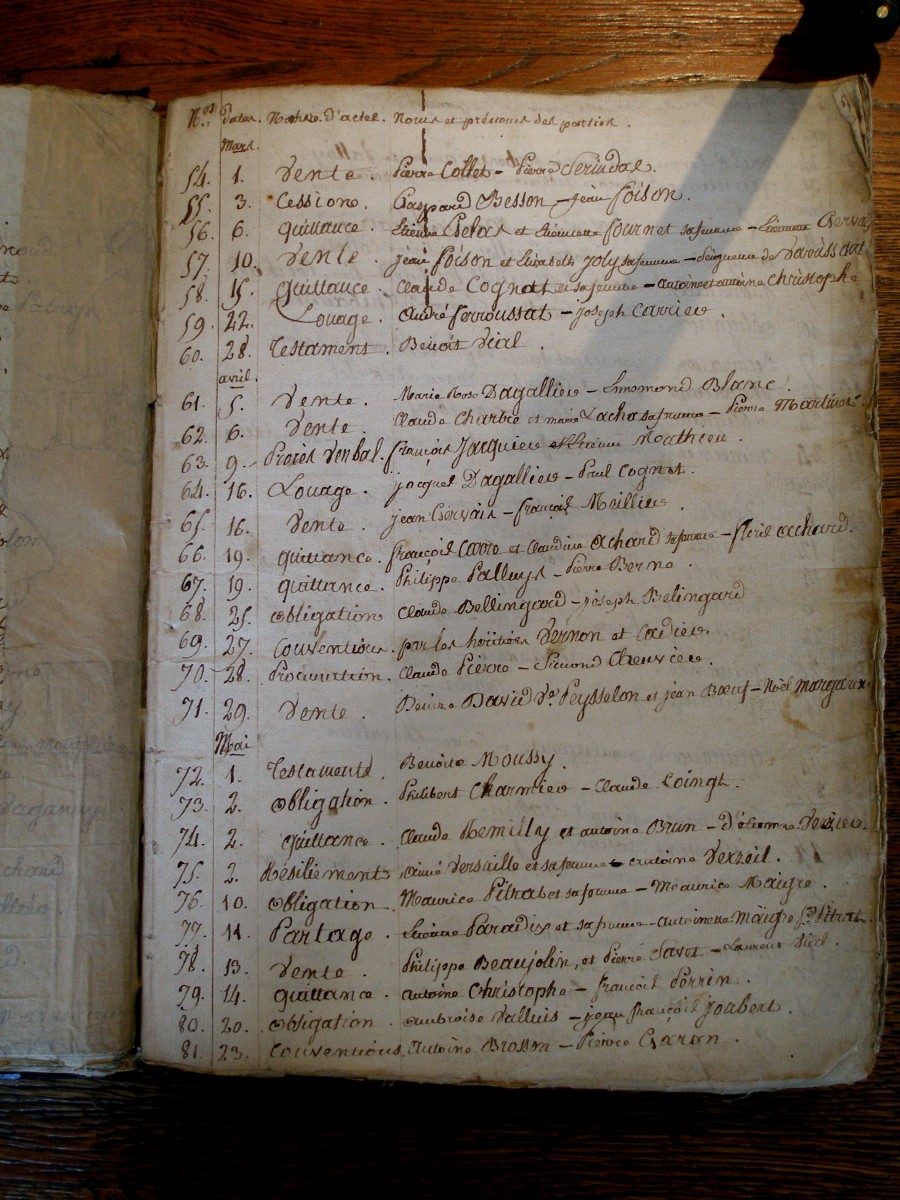 N.os dates. Nature d'actes. Noms et prénoms des parties.
Mars.
54. 1. Vente. Pierre Collet – Pierre
55. 3. Cession. Gaspard Besson – jean foison.
56. 6. quittance. Etienne et fournet sa femme –
57. 10. Vente. jean foison et Elisabeth joly sa femme –
58. 15. quittance. Claude Cognat et sa femme – antoine et antoine Christophe
59. 22. Louage. andré ferroussat – joseph Carrier.
60. 28. Testament. Benoît Vial.
avril.
61. 5. Vente. Marie Rose Dagallier – Ennemond Blanc.
62. 6. Vente. Claude Charbre et marie Lacha sa femme – Pierre Martinot.
63. 9. Procès Verbal. françois jacquier et Etienne Mathieu.
64. 16. Louage. jacques Dagallier – Paul Cognet.
65. 16. Vente. jean Gervais – françois Meillier.
66. 19. quittance. françois et Claudine achard sa femme – achard.
67. 19. quittance. Philippe Palluys – Pierre Berne.
68. 25. obligation Claude Bellingard – joseph Belingard
69. 27. Conventions. par les héritiers Vernon et Cadier.
70. 28. Procuration. Claude Pierre – Simond
71. 29. Vente. David Ve. Peysselon et jean Bœuf – Noël margaux
Mai
72. 1. Testament. Benoite Moussy.
73. 2. obligation. Philibert Charmier – Claude Loingt.
74. 2. quittance. Claude Remilly et antoine Brun – d'étienne
75. 2. Résiliement. aimé Versaille et sa femme – antoine Verzeil.
76. 10. obligation. Maurice Pitrat et sa femme – Maurice Maigre.
77. 11. Partage. Paradis et sa femme – antoinette Maigre fe. Pitrat.
78. 13. Vente. Philippe Beaujolin, et Pierre Favet – Laurent Vial.
79. 14. quittance. antoine Christophe – françois Perrin.
80. 20. obligation. ambroise Valluis – jean françois joubert.
81. 23. Conventions. antoine Brosson – Pierre Garon.